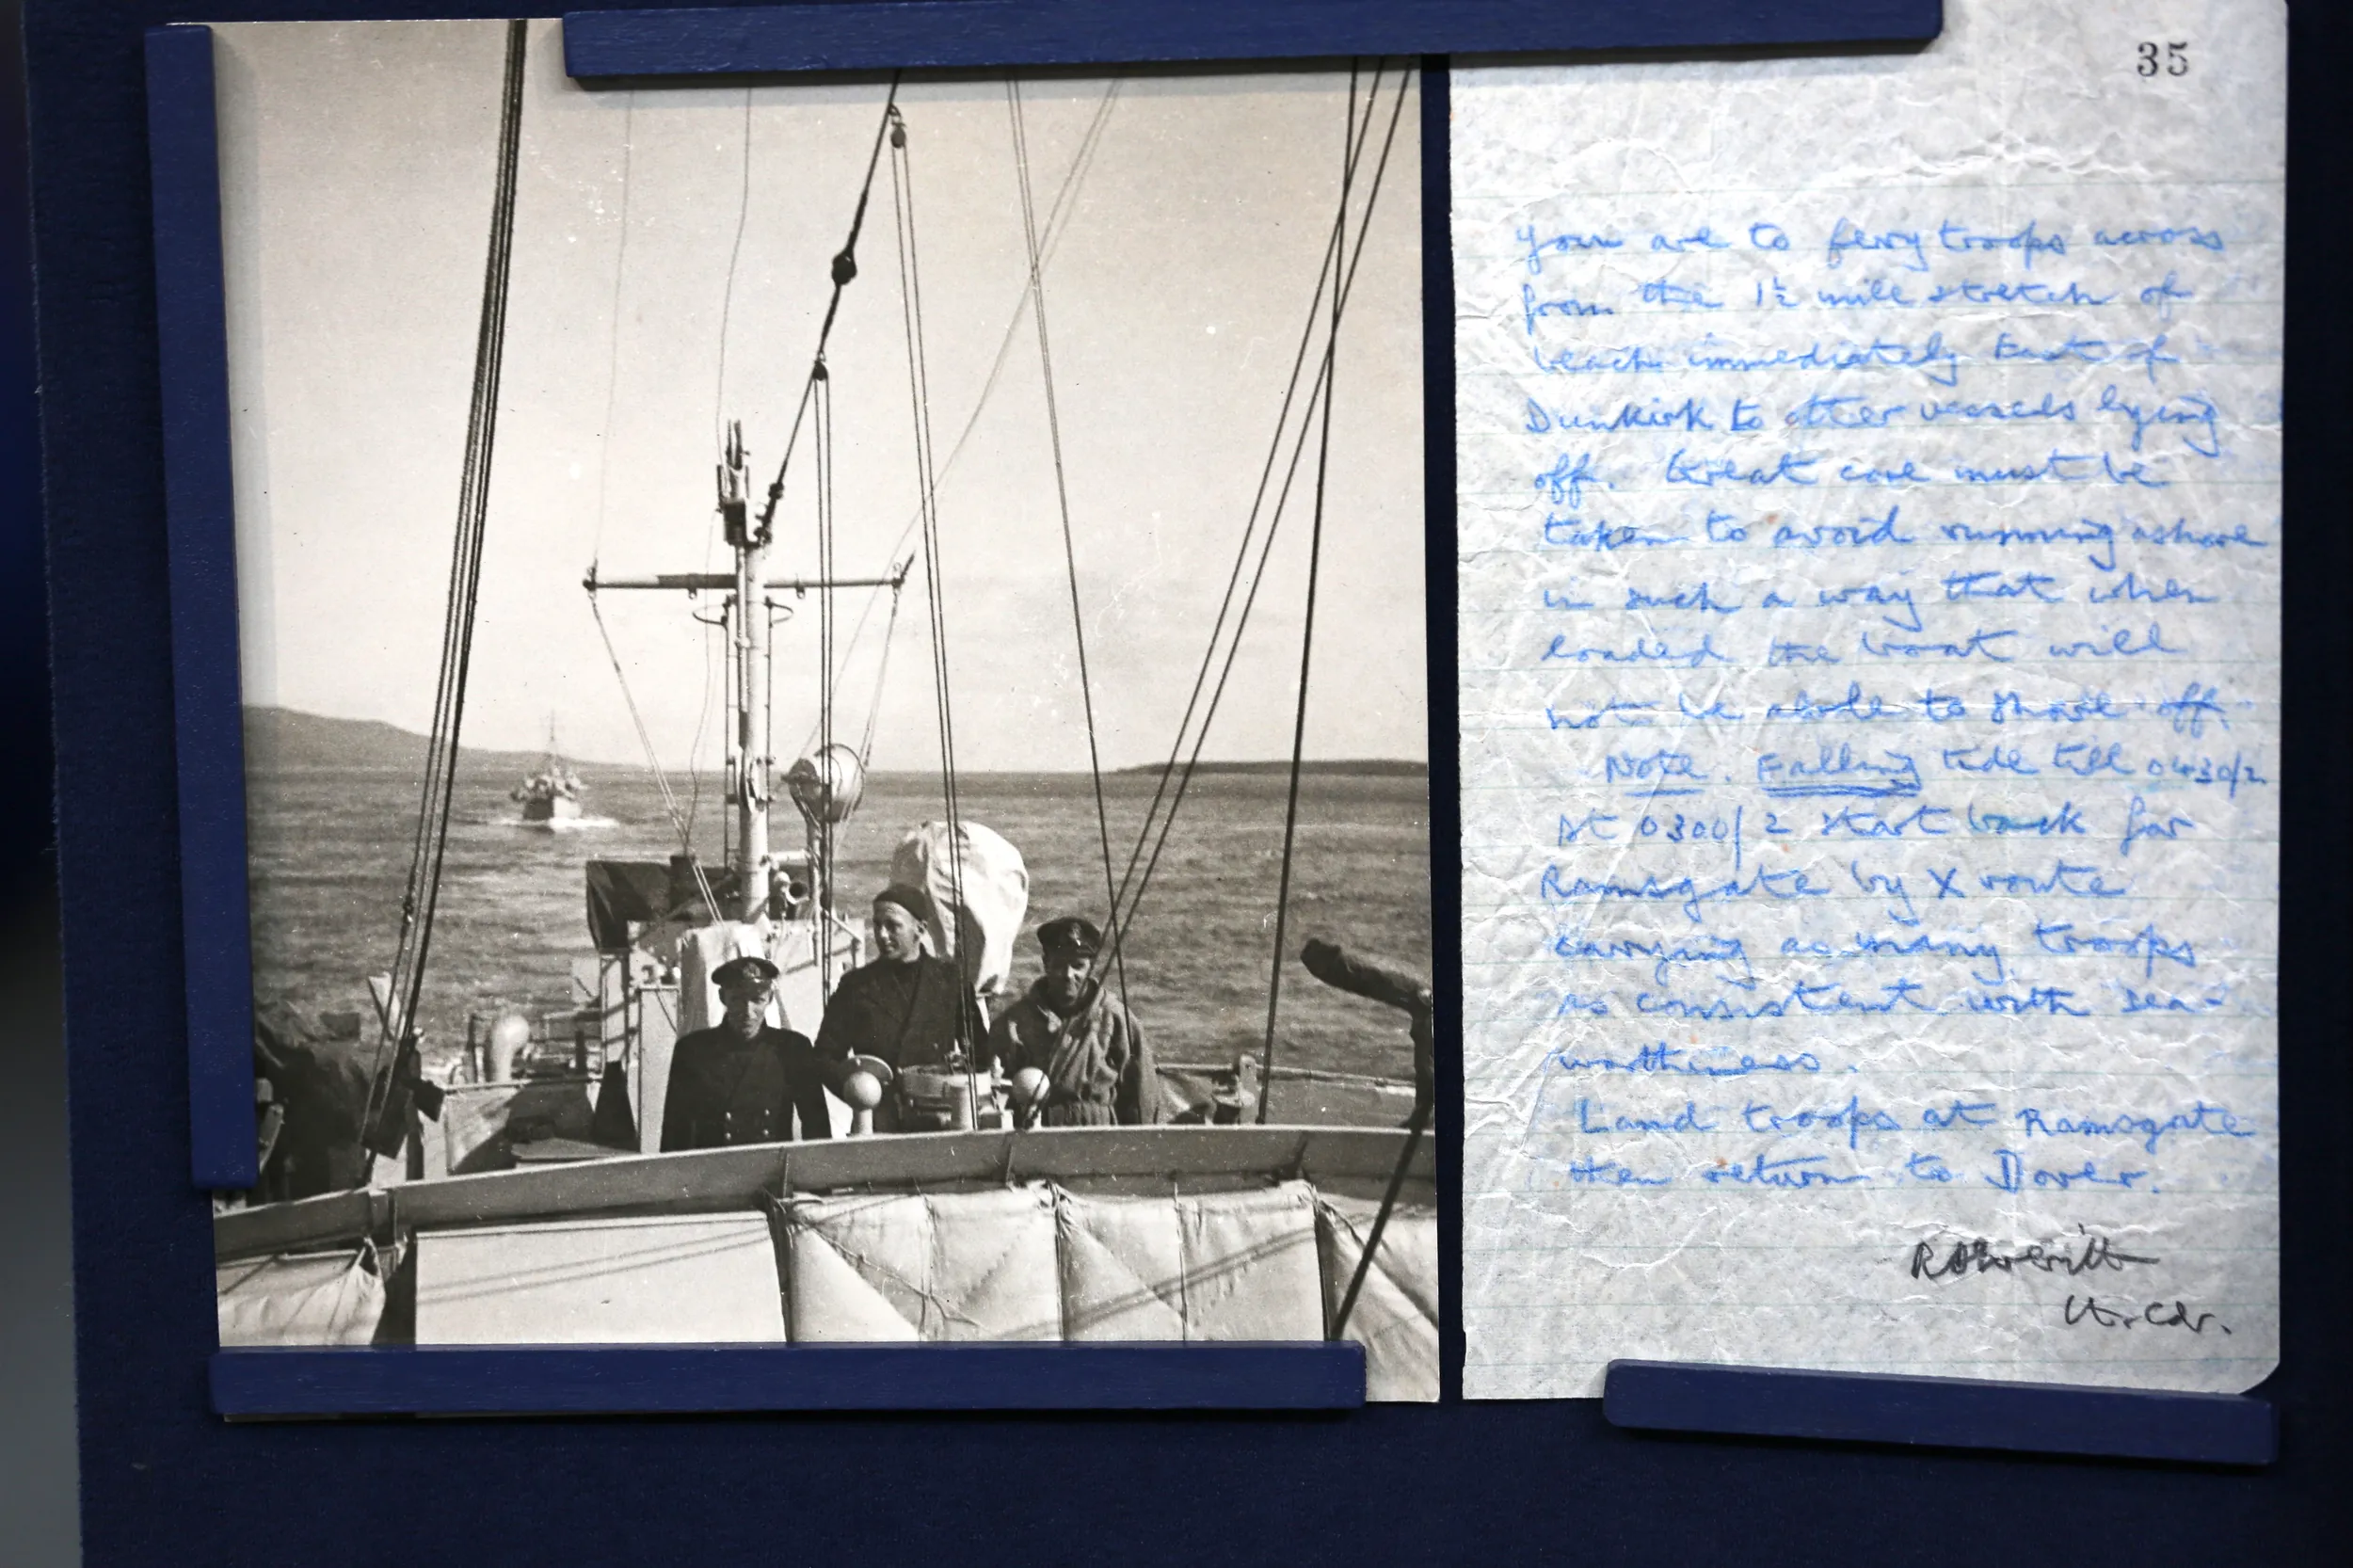 35
You are to ferry troops across
from the 1½ mile stretch of
beach immediately East of
Dunkirk to other vessels lying
off. Great care must be
taken to avoid running ashore
in such a way that when
loaded the boat will
not be able to shove off.
Note. Falling tide till 0430/2
At 0300/2 start back for
Ramsgate by X route
carrying as many troops
as consistent with sea-
worthiness.
Land troops at Ramsgate
then return to Dover.
Lt. Cdr.